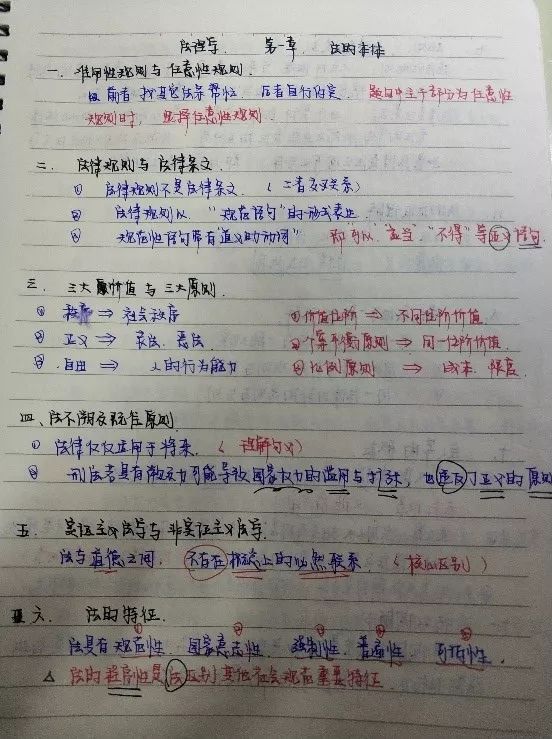 法理学 第一章 法的本体
一、准用性规则与任意性规则.
前者找其它法条帮忙 后者自行约定. 题目中主干部分为任意性
规则时, 选择任意性规则
二、法律规则与法律条文.
① 法律规则不是法律条文. (二者交叉关系)
② 法律规则以 "规范语句"的形式表达.
③ 规范性语句带有"道义助动词" 即可以、"应当"、"不得"等道义语句
三、三大原价值与三大原则.
① 秩序 ⇒ 社会秩序 ①价值位阶 ⇒ 不同位阶价值
② 正义 ⇒ 良法、恶法 ②个案平衡原则 ⇒ 同一位阶价值.
③ 自由 ⇒ 人的行为能力 ③比例原则 ⇒ 成本、限度.
四、法不溯及既往原则.
① 法律仅仅适用于将来. (理解句义)
② 刑法若具有溯及力可能导致国家权力的滥用与扩张, 也违反了正义的原则
五、实证主义法学与非实证主义法学.
法与道德之间, 不存在概念上的必然联系 (核心区别)
六、法的特征.
法具有规范性、国家意志性、强制性、普遍性、可诉性.
△ 法的程序性是法区别其他社会规范重要特征